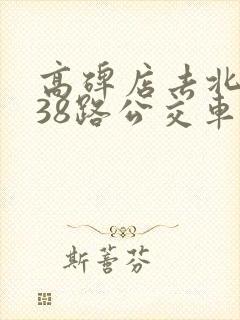 高碑店去北
38路公交车
斯蓍芬